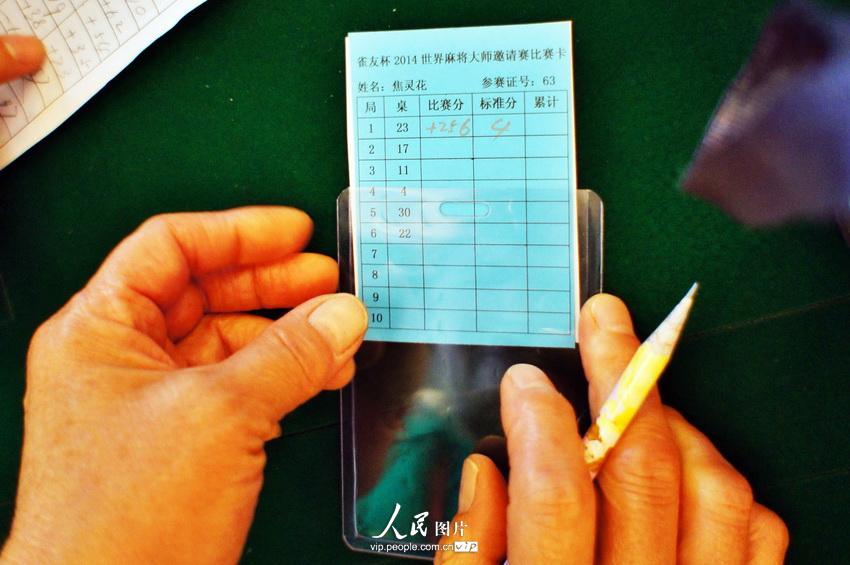 雀友杯 2014 世界麻将大师邀请赛比赛卡
姓名：焦灵花 参赛证号：63
局 桌 比赛分 标准分 累计
1 23 +256 4
2 17
3 11
4 4
5 30
6 22
7
8
9
10
人民图片
vip.people.com.cn vip